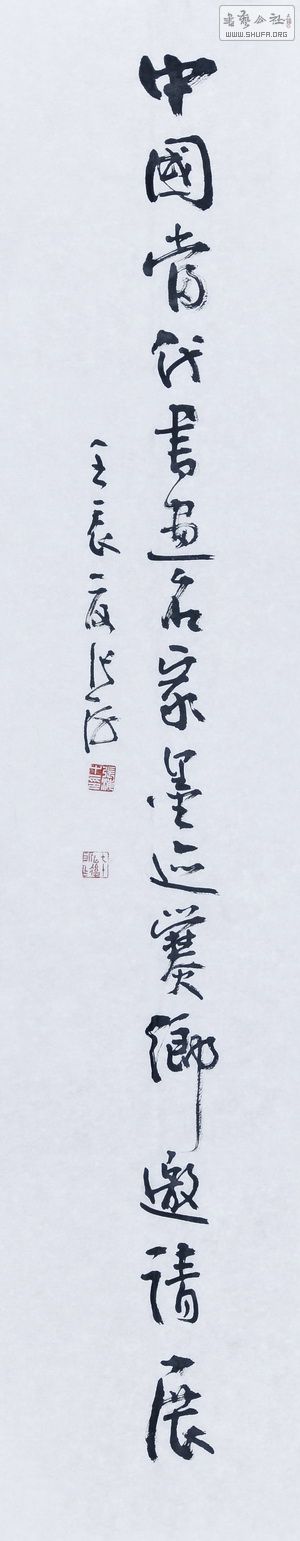 書藝公社
WWW.SHUFA.ORG
中國當代書畫名家墨迹爨鄉邀請展
壬辰夏